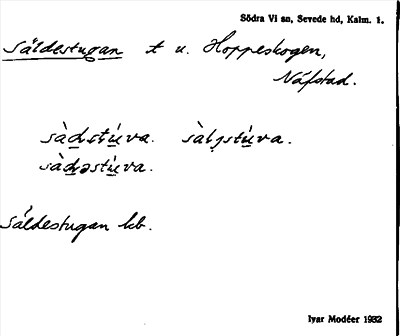 Södra Vi sn, Sevede hd, Kalm. 1.
Såldestugan t u. Hoppeskogen,
Näfstad.
sàdstúva. sàlstúva.
sàdəstúva.
Såldestugan kb.
Ivar Modéer 1932